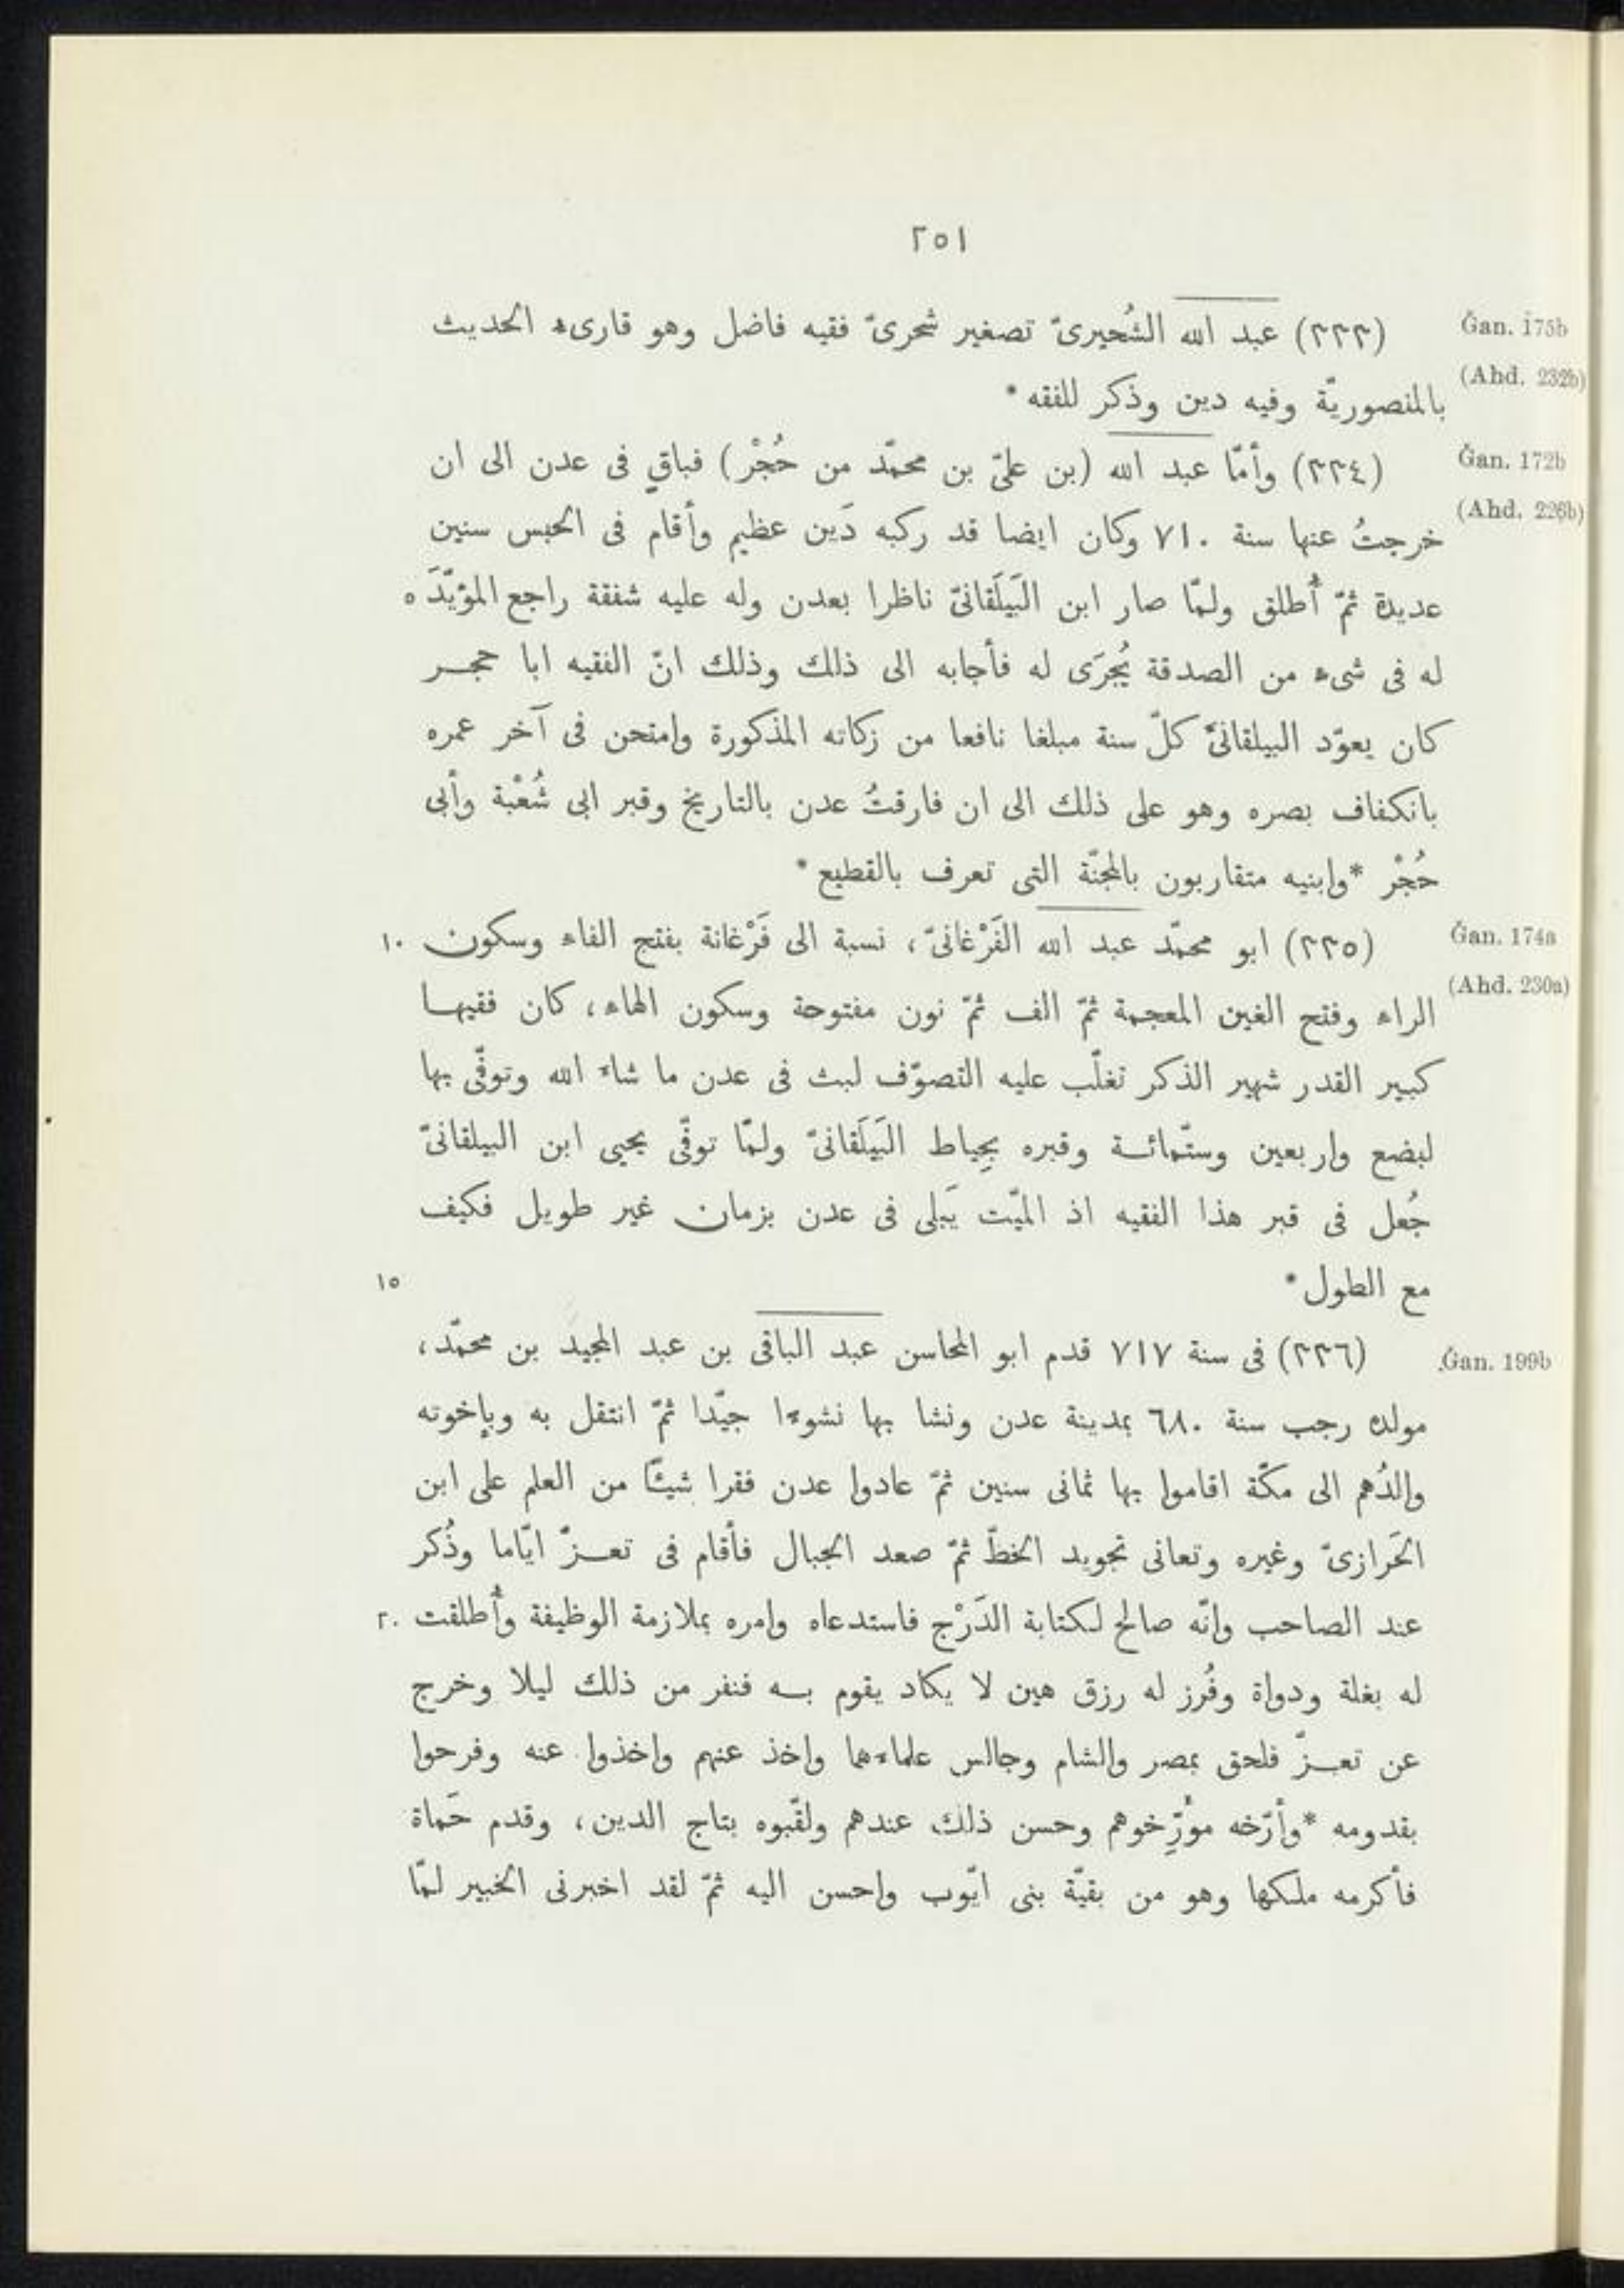 ٢٥١
(٢٢٣) عبد الله الشُحيرىّ تصغير شحرىّ فقيه فاضل وهو قارىء الحديث
Ǧan. 175b
(Ahd. 232b)
بالمنصوريّة وفيه دين وذكر للفقه *
(٢٢٤) وأمّا عبد الله (بن علىّ بن محمّد من حُجْر) فباقٍ فى عدن الى ان
Ǧan. 172b
(Ahd. 226b)
خرجتُ عنها سنة ٧١٠ وكان ايضا قد ركبه دَين عظيم وأقام فى الحبس سنين
عديدة ثمّ أُطلق ولمّا صار ابن البَيلَقانىّ ناظرا بعدن وله عليه شفقة راجع المؤيّدَ ٥
له فى شىء من الصدقة يُجرَى له فأجابه الى ذلك وذلك انّ الفقيه ابا حجر
كان يعوّد البيلقانىّ كلّ سنة مبلغا نافعا من زكاته المذكورة وامتحن فى آخر عمره
بانكفاف بصره وهو على ذلك الى ان فارقتُ عدن بالتاريخ وقبر ابى شُعْبة وأبى
حُجْر *وابنيه متقاربون بالمجنّة التى تعرف بالقطيع *
(٢٢٥) ابو محمّد عبد الله الفَرْغانىّ، نسبة الى فَرْغانة بفتح الفاء وسكون ١٠
Ǧan. 174a
(Ahd. 230a)
الراء وفتح الغين المعجمة ثمّ الف ثمّ نون مفتوحة وسكون الهاء، كان فقيها
كبير القدر شهير الذكر تغلّب عليه التصوّف لبث فى عدن ما شاء الله وتوفّى بها
لبضع واربعين وستّمائة وقبره بحِياط البَيلَقانىّ ولمّا توفّى يحيى ابن البيلقانىّ
جُعل فى قبر هذا الفقيه اذ الميّت يَبلى فى عدن بزمان غير طويل فكيف
مع الطول * ١٥
(٢٢٦) فى سنة ٧١٧ قدم ابو المحاسن عبد الباقى بن عبد المجيد بن محمّد،
Ǧan. 199b
مولده رجب سنة ٦٨٠ بمدينة عدن ونشا بها نشوءا جيّدا ثمّ انتقل به وبإخوته
والدُهم الى مكّة اقاموا بها ثمانى سنين ثمّ عادوا عدن فقرا شيئًا من العلم على ابن
الحَرازىّ وغيره وتعانى تجويد الخطّ ثمّ صعد الجبال فأقام فى تعزّ ايّاما وذُكر
عند الصاحب وانّه صالح لكتابة الدَرْج فاستدعاه وامره بملازمة الوظيفة وأُطلقت ٢٠
له بغلة ودواة وفُرز له رزق هين لا يكاد يقوم به فنفر من ذلك ليلا وخرج
عن تعزّ فلحق بمصر والشام وجالس علماءها واخذ عنهم واخذوا عنه وفرحوا
بقدومه *وأرّخه مؤرِّخوهم وحسن ذلك عندهم ولقّبوه بتاج الدين، وقدم حَماة
فأكرمه ملكها وهو من بقيّة بنى ايّوب واحسن اليه ثمّ لقد اخبرنى الخبير لمّا